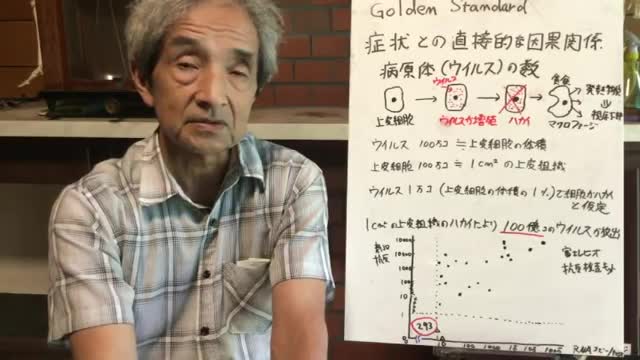 Golden Standard
症状との直接的な因果関係.
病原体(ウイルス)の数
ウイルス
貪食
上皮細胞
ウイルスが増殖
ハカイ
マクロファージ
ウイルス 100万コ ≒ 上皮細胞の体積
上皮細胞 100万コ ≒ 1cm² の上皮組織
ウイルス 1万コ (上皮細胞の体積の 1%) で細胞がハカイ
と仮定
1cm²の上皮組織のハカイにより 100億コのウイルスが放出
富士レビオ
抗原検査キット
293